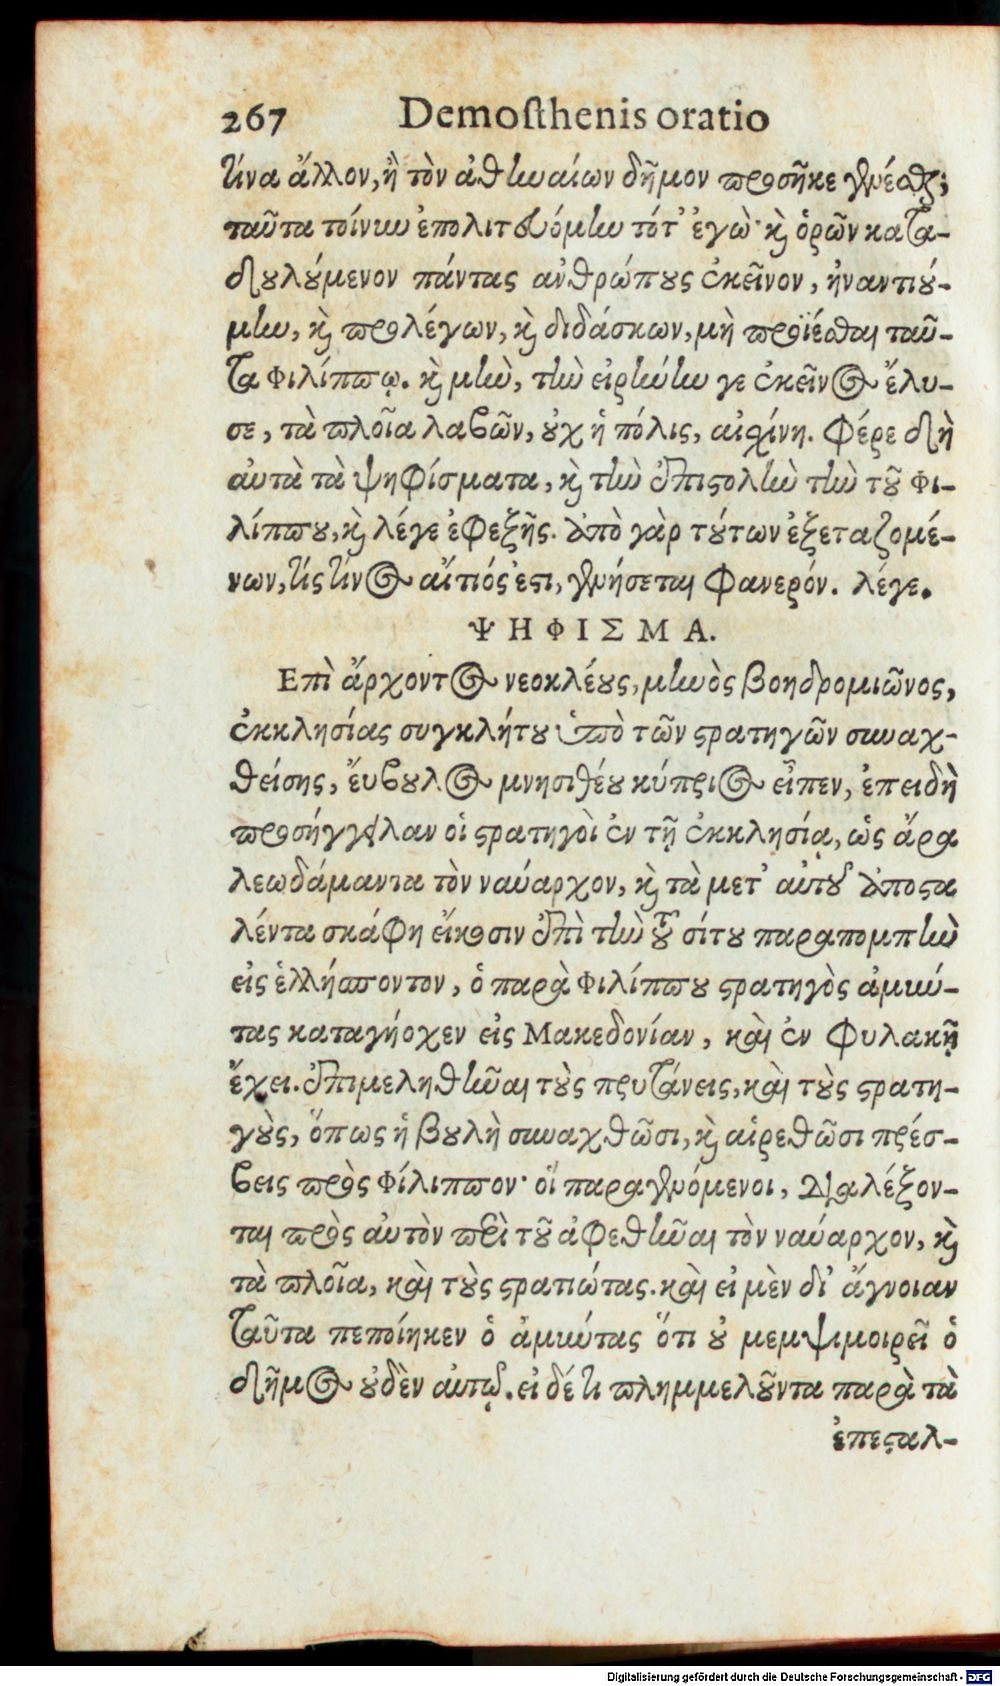 267 Demosthenis oratio
τίνα ἄλλον, ἢ τὸν ἀθηναίων δῆμον προσῆκε γενέσθαι;
ταῦτα τοίνυν ἐπολιτευόμην τότ' ἐγὼ· καὶ ὁρῶν κατα-
δουλούμενον πάντας ἀνθρώπους ἐκεῖνον, ἠναντιού-
μην, καὶ προλέγων, καὶ διδάσκων, μὴ προΐεσθαι ταῦ-
τα Φιλίππῳ. καὶ μὴν, τὴν εἰρήνην γε ἐκεῖνος ἔλυ-
σε, τὰ πλοῖα λαβῶν, οὐχ ἡ πόλις, αἰσχίνη. Φέρε δὴ
αὐτὰ τὰ ψηφίσματα, καὶ τὴν ἐπιστολὴν τὴν τοῦ Φι-
λίππου, καὶ λέγε ἐφεξῆς. ἀπὸ γὰρ τούτων ἐξεταζομέ-
νων, τίς τίνος αἴτιός ἐστι, γενήσεται φανερόν. λέγε.
ΨΗΦΙΣΜΑ.
Επὶ ἄρχοντος νεοκλέους, μηνὸς βοηδρομιῶνος,
ἐκκλησίας συγκλήτου ὑπὸ τῶν στρατηγῶν συναχ-
θείσης, ἔυβουλος μνησιθέου κύπριος εἶπεν, ἐπειδὴ
προσήγγειλαν οἱ στρατηγοὶ ἐν τῇ ἐκκλησίᾳ, ὡς ἄρα
λεωδάμαντα τὸν ναύαρχον, καὶ τὰ μετ' αὐτοῦ ἀποστα
λέντα σκάφη εἴκοσιν ἐπὶ τὴν τοῦ σίτου παραπομπὴν
εἰς ἑλλήσποντον, ὁ παρὰ Φιλίππου στρατηγὸς ἀμύν-
τας καταγήοχεν εἰς Μακεδονίαν, καὶ ἐν φυλακῇ
ἔχει. ἐπιμεληθῆναι τοὺς πρυτάνεις, καὶ τοὺς στρατη-
γοὺς, ὅπως ἡ βουλὴ συναχθῶσι, καὶ αἱρεθῶσι πρέσ-
βεις πρὸς Φίλιππον· οἵ παραγενόμενοι, διαλέξον-
ται πρὸς αὐτὸν περὶ τοῦ ἀφεθῆναι τὸν ναύαρχον, καὶ
τὰ πλοῖα, καὶ τοὺς στρατιώτας. καὶ εἰ μὲν δι' ἄγνοιαν
ταῦτα πεποίηκεν ὁ ἀμύντας ὅτι οὐ μεμψιμοιρεῖ ὁ
δῆμος οὐδὲν αὐτῷ. εἰ δέ τι πλημμελοῦντα παρὰ τὰ
ἐπεσταλ-
Digitalisierung gefördert durch die Deutsche Forschungsgemeinschaft - DFG